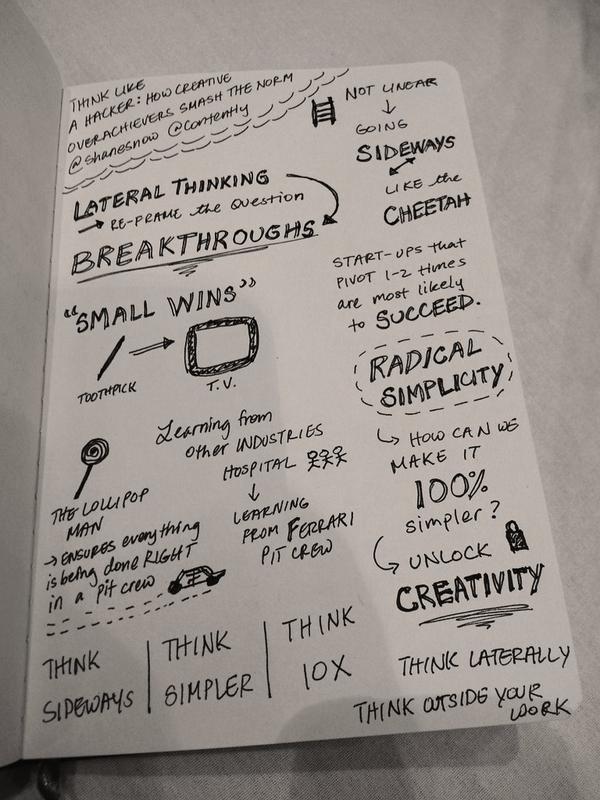 THINK LIKE
A HACKER: HOW CREATIVE
OVERACHIEVERS SMASH THE NORM
@shanesnow @contently
LATERAL THINKING
RE-FRAME the QUESTION
BREAKTHROUGHS
"SMALL WINS"
TOOTHPICK
T.V.
Learning from
other INDUSTRIES
HOSPITAL
LEARNING
FROM FERRARI
PIT CREW
THE LOLLIPOP
MAN
→ ENSURES everything
is being done RIGHT
in a pit crew
NOT LINEAR
GOING
SIDEWAYS
LIKE the
CHEETAH
START-UPS that
PIVOT 1-2 times
are most likely
to SUCCEED.
RADICAL
SIMPLICITY
HOW CAN WE
MAKE IT
100%
simpler?
UNLOCK
CREATIVITY
THINK
SIDEWAYS
THINK
SIMPLER
THINK
10X
THINK LATERALLY
THINK OUTSIDE YOUR
WORK